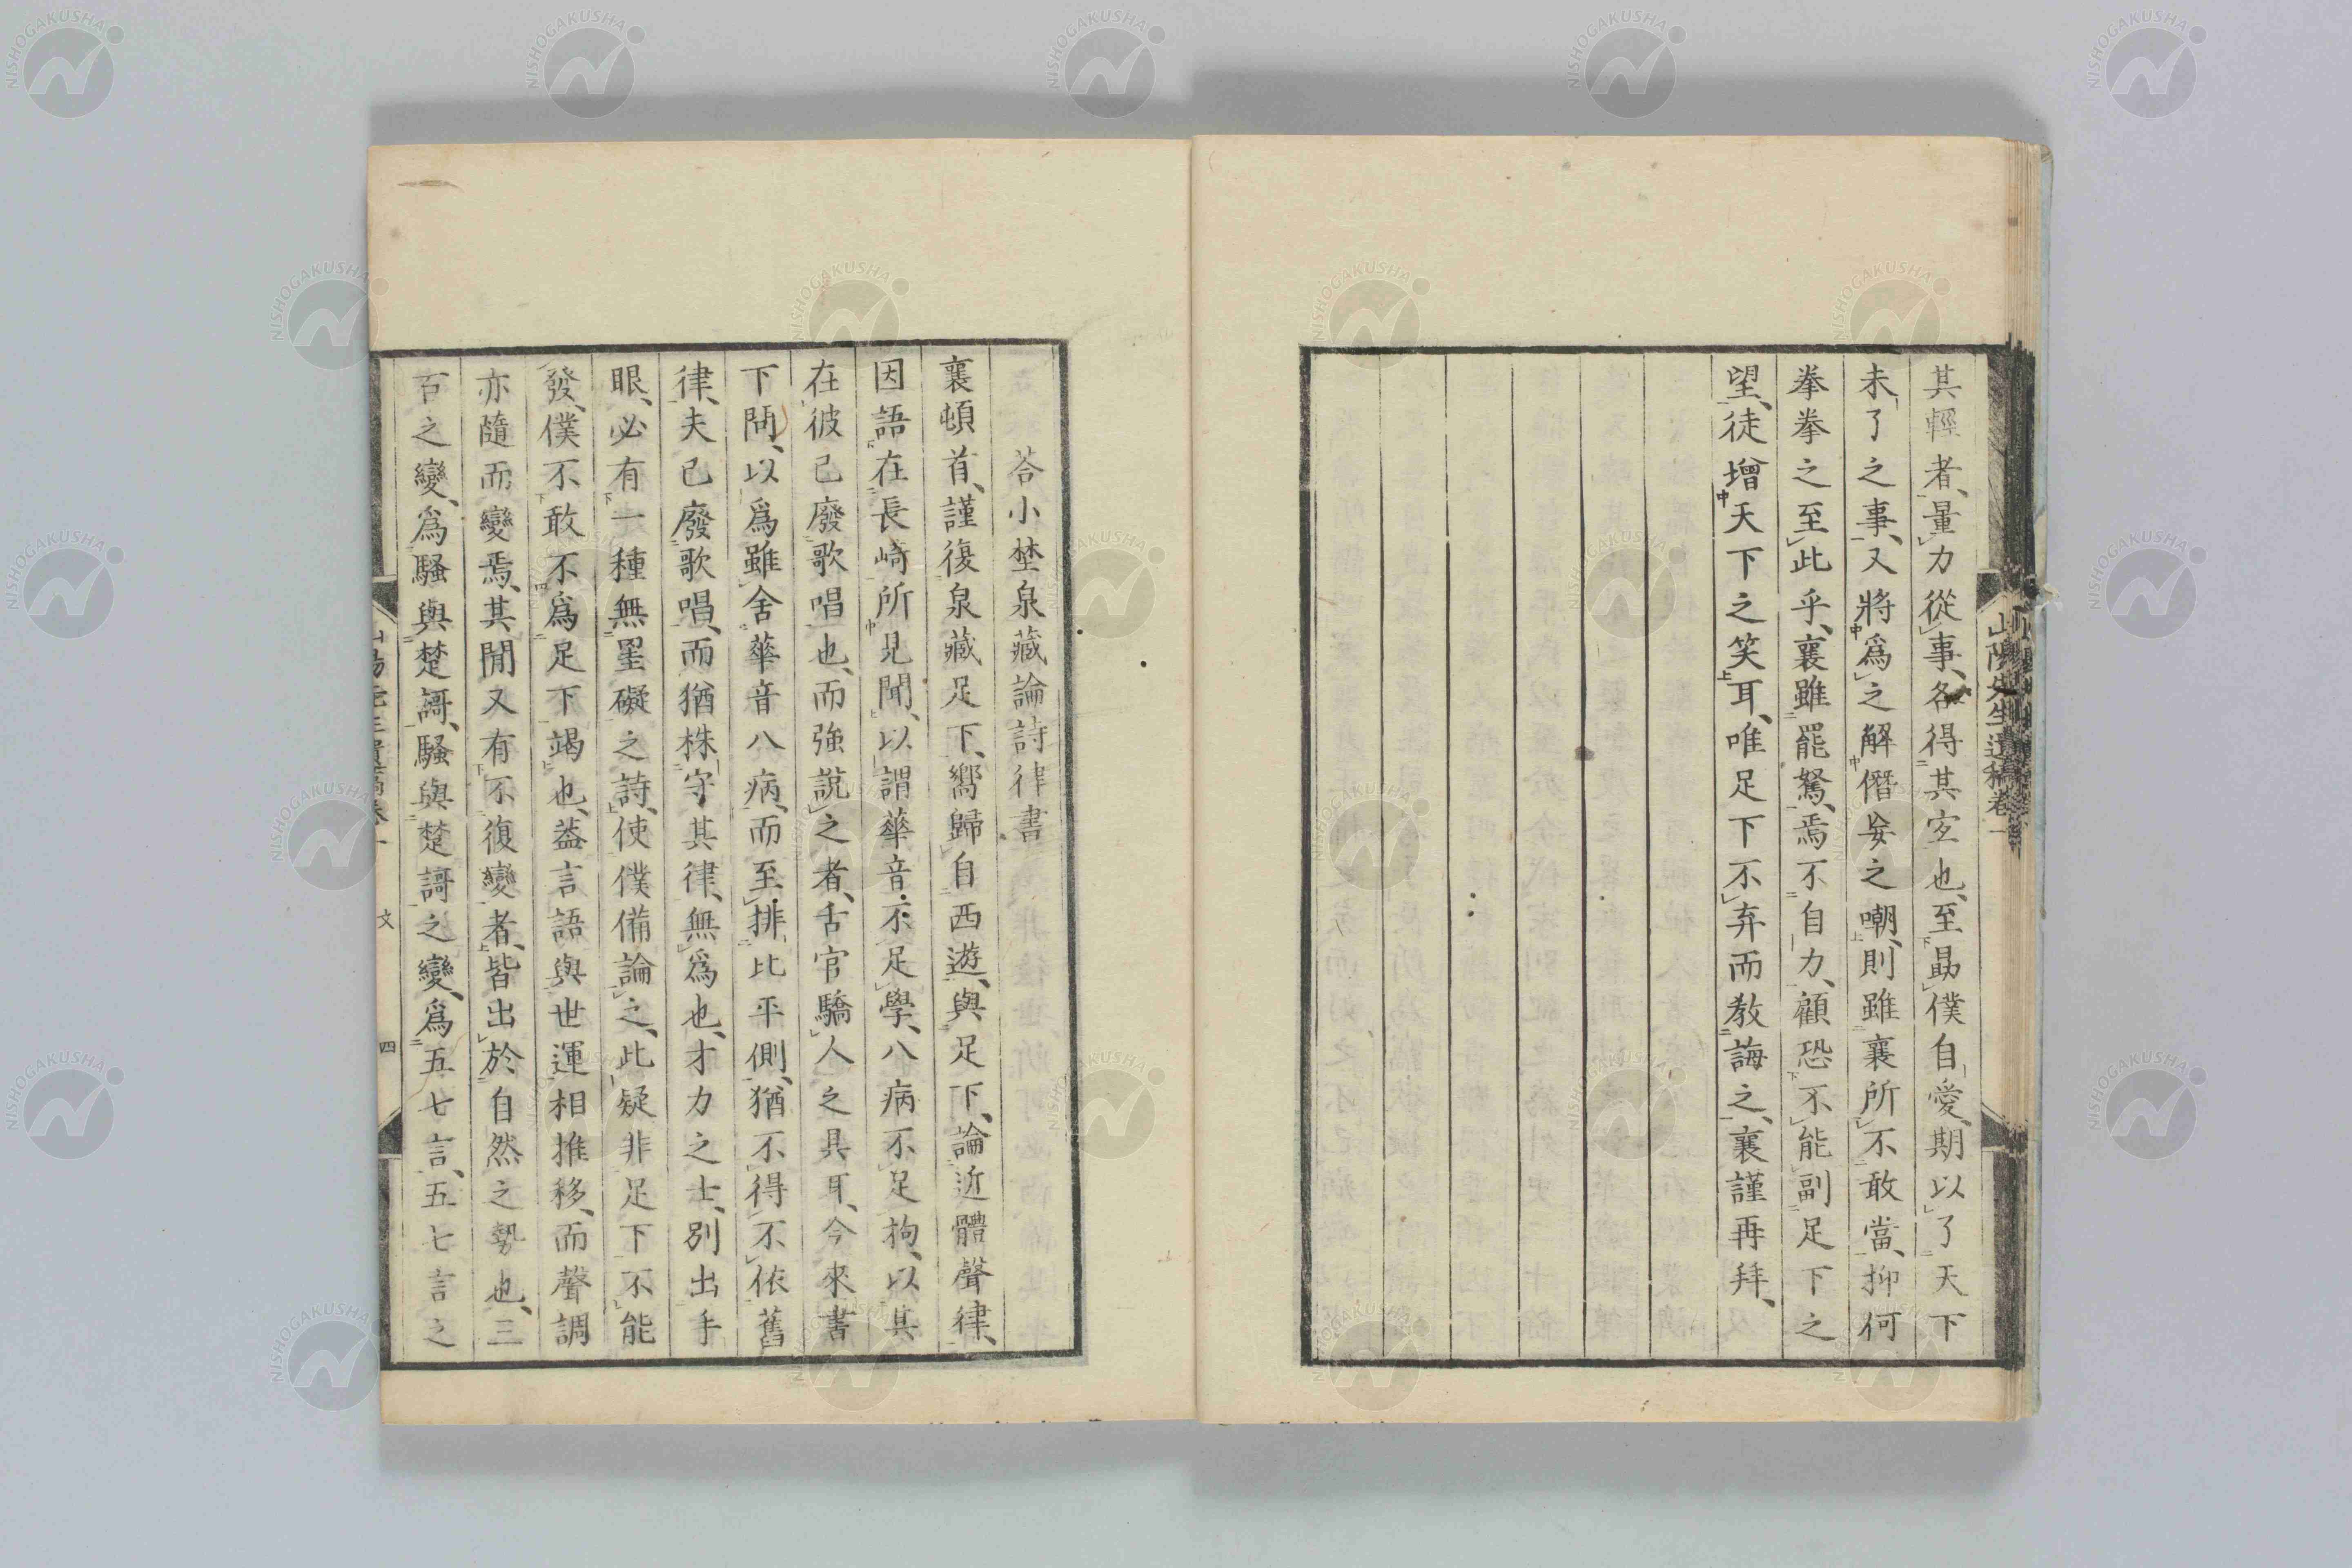 其輕者、量力從事、各得其宜也、至勗僕自愛、期以了天下
未了之事、又將爲之解僭妄之嘲、則雖襄所不敢當、抑何
拳拳之至此乎、襄雖罷駑、焉不自力、顧恐不能副足下之
望、徒增天下之笑耳、唯足下不弃而教誨之、襄謹再拜、
山陽先生遺稿卷一
荅小埜泉藏論詩律書
襄頓首、謹復泉藏足下、嚮歸自西遊、與足下、論近體聲律、
因語在長崎所見聞、以謂華音不足學、八病不足拘、以其
在彼已廢歌唱也、而強説之者、舌官驕人之具耳、今來書
下問、以爲雖舍華音八病、而至排比平側、猶不得不依舊
律、夫已廢歌唱、而猶株守其律、無爲也、才力之士、別出手
眼、必有一種無罣礙之詩、使僕備論之、此疑非足下不能
發、僕不敢不爲足下竭也、葢言語與世運相推移、而聲調
亦隨而變焉、其閒又有不復變者、皆出於自然之勢也、三
百之變、爲騷與楚謌、騷與楚謌之變、爲五七言、五七言之
文
四
NISHOGAKUSHA